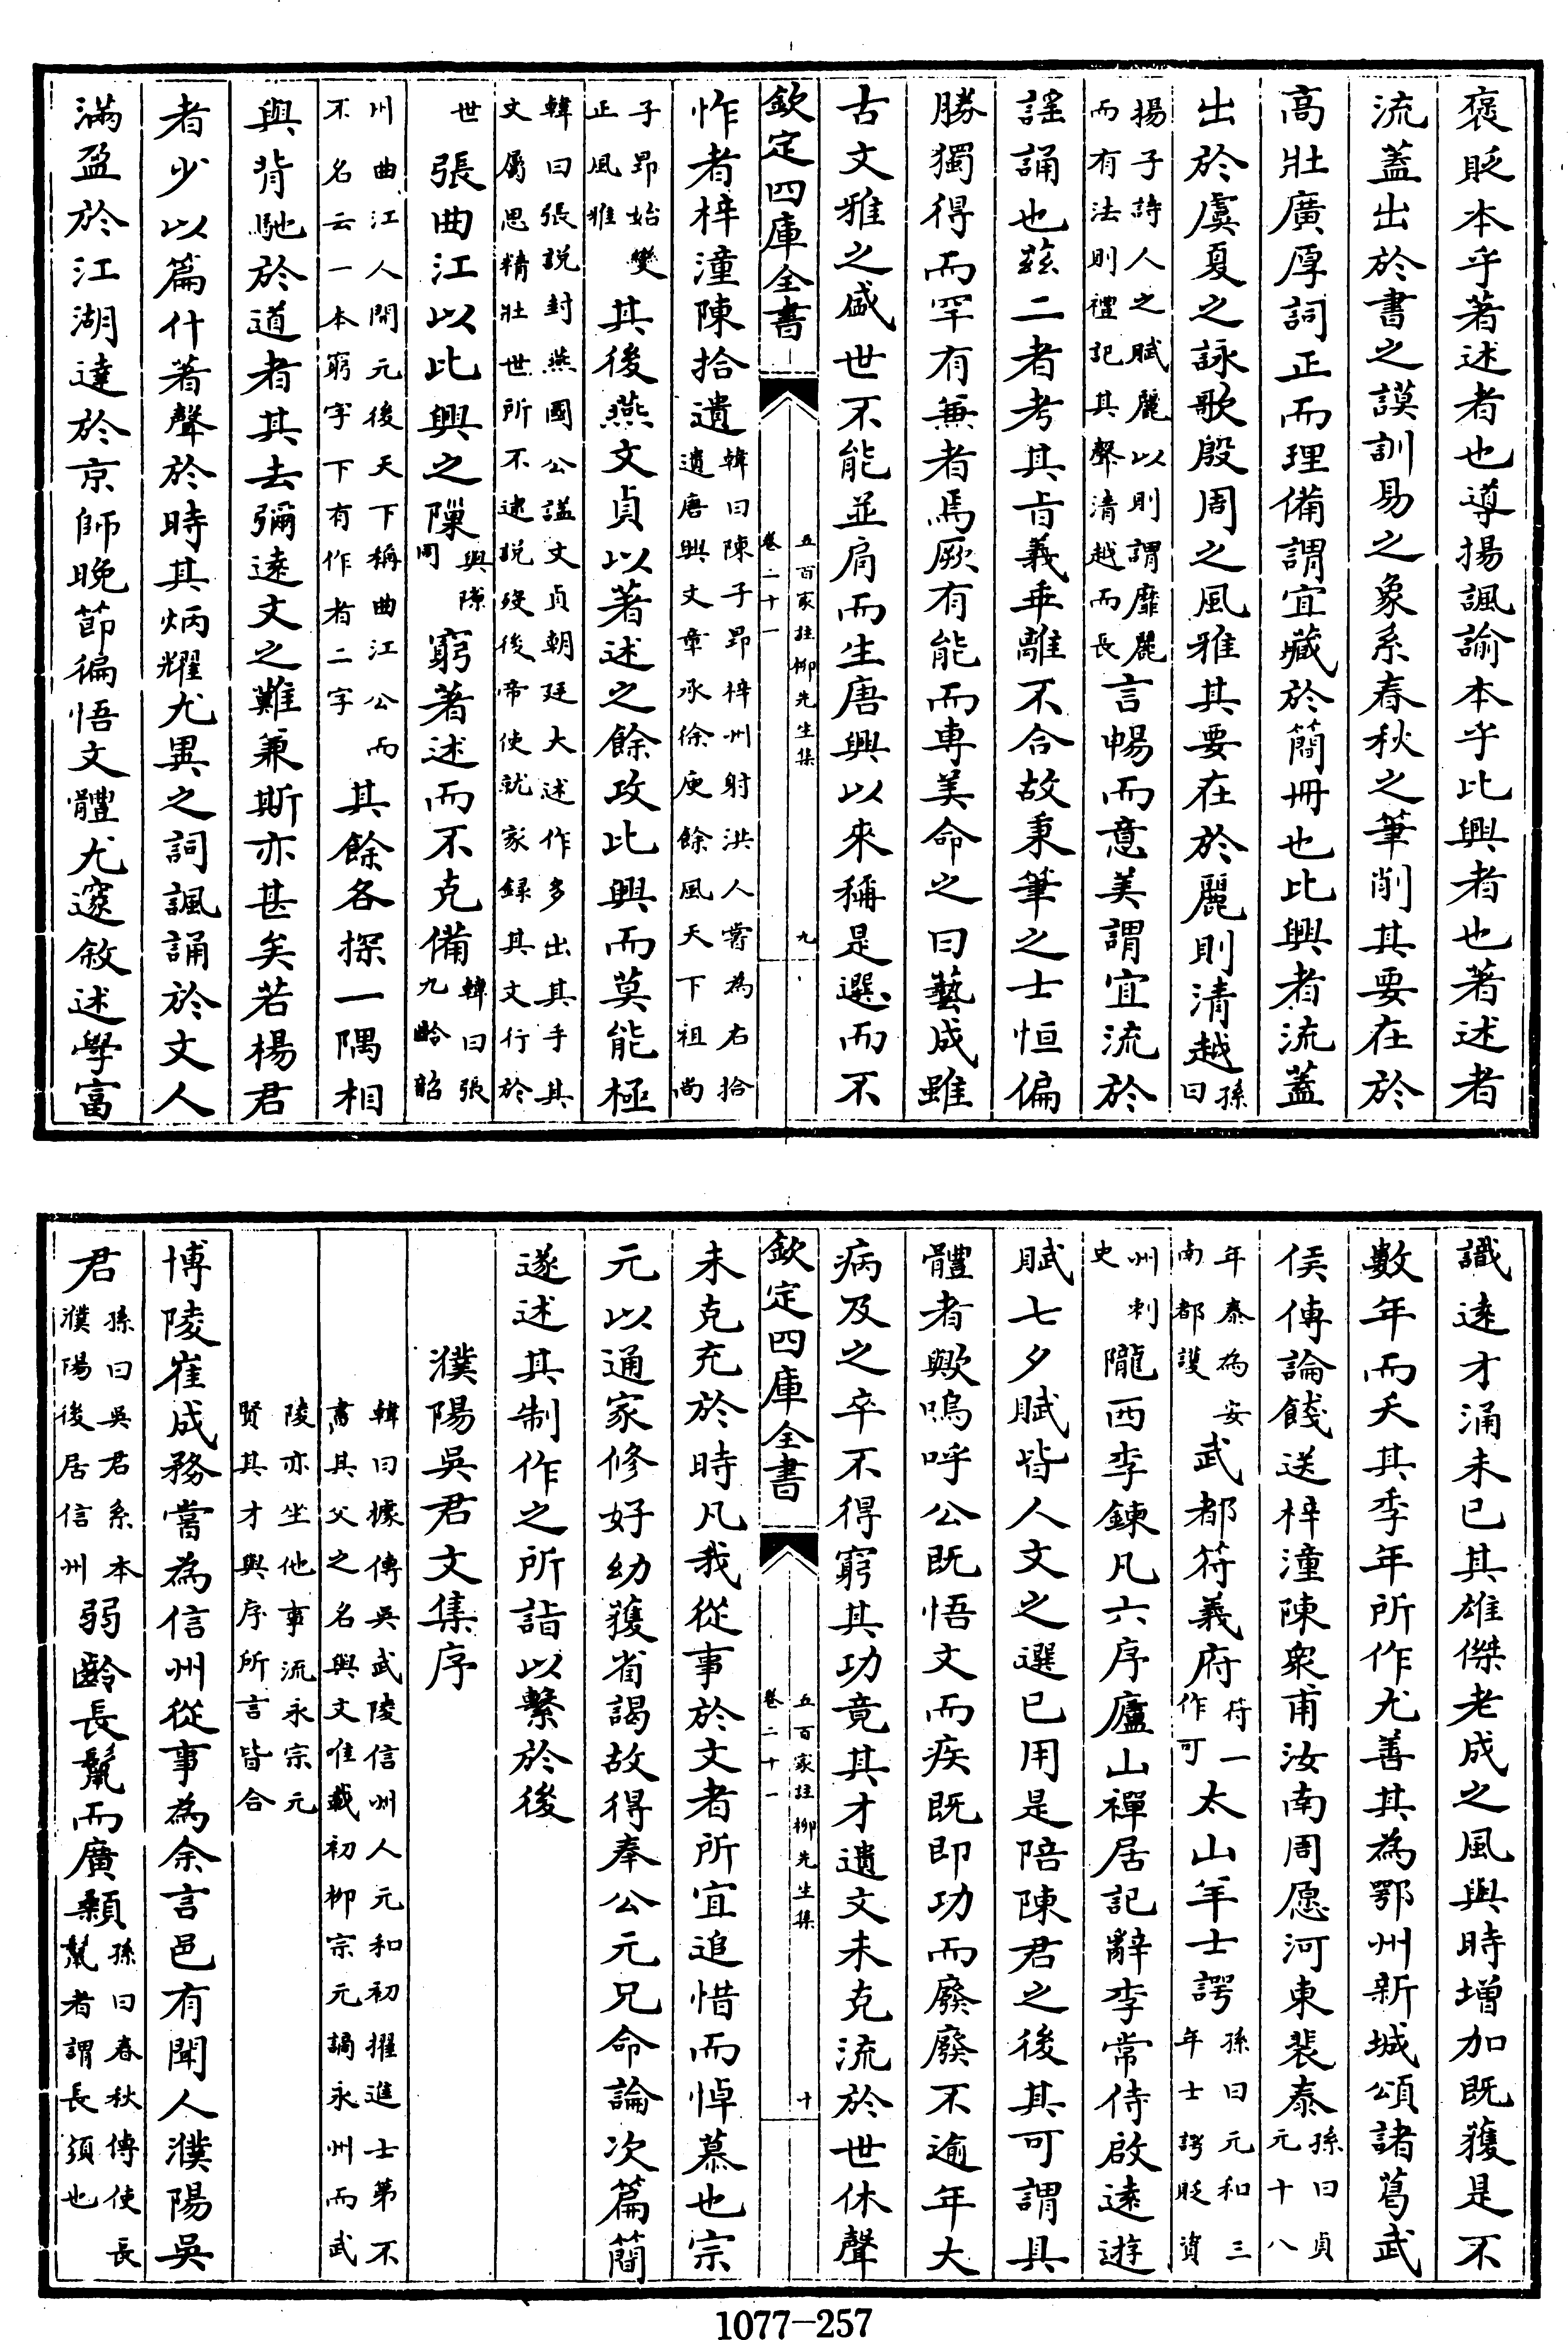 褒貶本乎著述者也導揚諷諭本乎比興者也著述者
流蓋出於書之謨訓易之象系春秋之筆削其要在於
高壯廣厚詞正而理備謂宜藏於簡冊也比興者流蓋
出於虞夏之詠歌殷周之風雅其要在於麗則清越孫曰
揚子詩人之賦麗以則謂靡麗而有法則禮記其聲清越而長言暢而意美謂宜流於
謠誦也茲二者考其旨義乖離不合故秉筆之士恒偏
勝獨得而罕有兼者焉厥有能而專美命之曰藝成雖
古文雅之盛世不能並肩而生唐興以來稱是選而不
欽定四庫全書 五百家註柳先生集 卷二十一 九
怍者梓潼陳拾遺韓曰陳子昂梓州射洪人嘗為右拾遺唐興文章承徐庾餘風天下祖尚
子昂始變正風雅其後燕文貞以著述之餘攻比興而莫能極
韓曰張説封燕國公諡文貞朝廷大述作多出其手其文屬思精壯世所不逮説歿後帝使就家録其文行於
世張曲江以比興之隟與隙同窮著述而不克備韓曰張九齡韶
州曲江人開元後天下稱曲江公而不名云一本窮字下有作者二字其餘各探一隅相
與背馳於道者其去彌遠文之難兼斯亦甚矣若楊君
者少以篇什著聲於時其炳耀尤異之詞諷誦於文人
滿盈於江湖達於京師晚節徧悟文體尤邃敘述學富
識遠才涌未已其雄傑老成之風與時增加既獲是不
數年而夭其季年所作尤善其為鄂州新城頌諸葛武
侯傳論餞送梓潼陳衆甫汝南周愿河東裴泰孫曰貞元十八
年泰為安南都護武都符義府符一作可太山羊士諤孫曰元和三年士諤貶資
州刺史隴西李鍊凡六序廬山禪居記辭李常侍啟遠遊
賦七夕賦皆人文之選已用是陪陳君之後其可謂具
體者歟嗚呼公既悟文而疾既即功而廢廢不逾年大
病及之卒不得窮其功竟其才遺文未克流於世休聲
欽定四庫全書 五百家註柳先生集 卷二十一 十
未克充於時凡我從事於文者所宜追惜而悼慕也宗
元以通家修好幼獲省謁故得奉公元兄命論次篇簡
遂述其制作之所詣以繫於後
濮陽吳君文集序
韓曰據傳吳武陵信州人元和初擢進士第不書其父之名與文唯載初柳宗元謫永州而武
陵亦坐他事流永宗元賢其才與序所言皆合
博陵崔成務嘗為信州從事為余言邑有聞人濮陽吳
君孫曰吳君系本濮陽後居信州弱齡長鬣而廣顙孫曰春秋傳使長鬣者謂長須也
1077—257